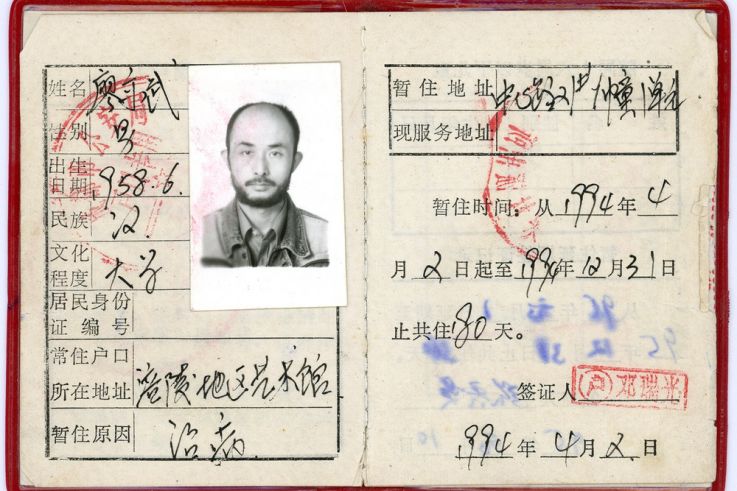 姓名 廖亦武
性别 男
出生日期 1958.6.
民族 汉
文化程度 大学
居民身份证编号
常住户口所在地址 涪陵地区艺术馆
暂住原因 治病
暂住地址 中心路 单元
现服务地址
暂住时间：从1994年4
月2日起至1994年12月31日
止共住 天。
签证人 邓瑞平
1994年4月2日